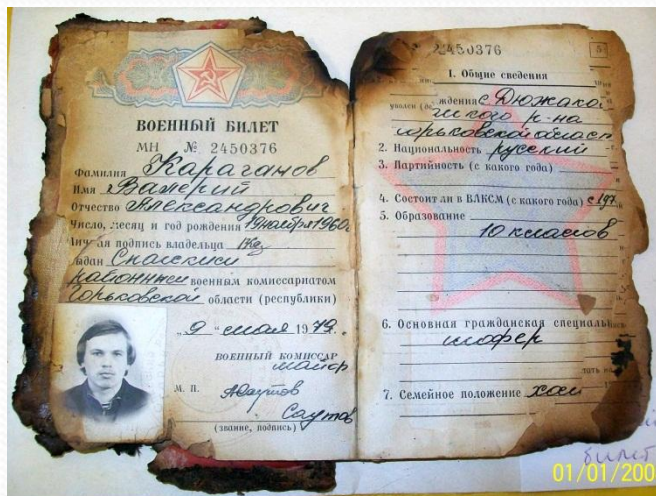 ВОЕННЫЙ БИЛЕТ
МН № 2450376
Фамилия Караганов
Имя Валерий
Отчество Александрович
Число, месяц и год рождения 19 ноября 1960г
Личная подпись владельца
Выдан Спасским
районным военным комиссариатом
Горьковской области (республики)
„9 “ мая 1979г.
ВОЕННЫЙ КОМИССАР
майор
М. П.
Саутов
(звание, подпись)
2450376
5
I. Общие сведения
ждения с.
ского р-на
горьковской област
2. Национальность русский
3. Партийность (с какого года)
4. Состоит ли в ВЛКСМ (с какого года) с 197
5. Образование
10 класов
6. Основная гражданская специальность
шофер
7. Семейное положение хол
билет
01/01/200